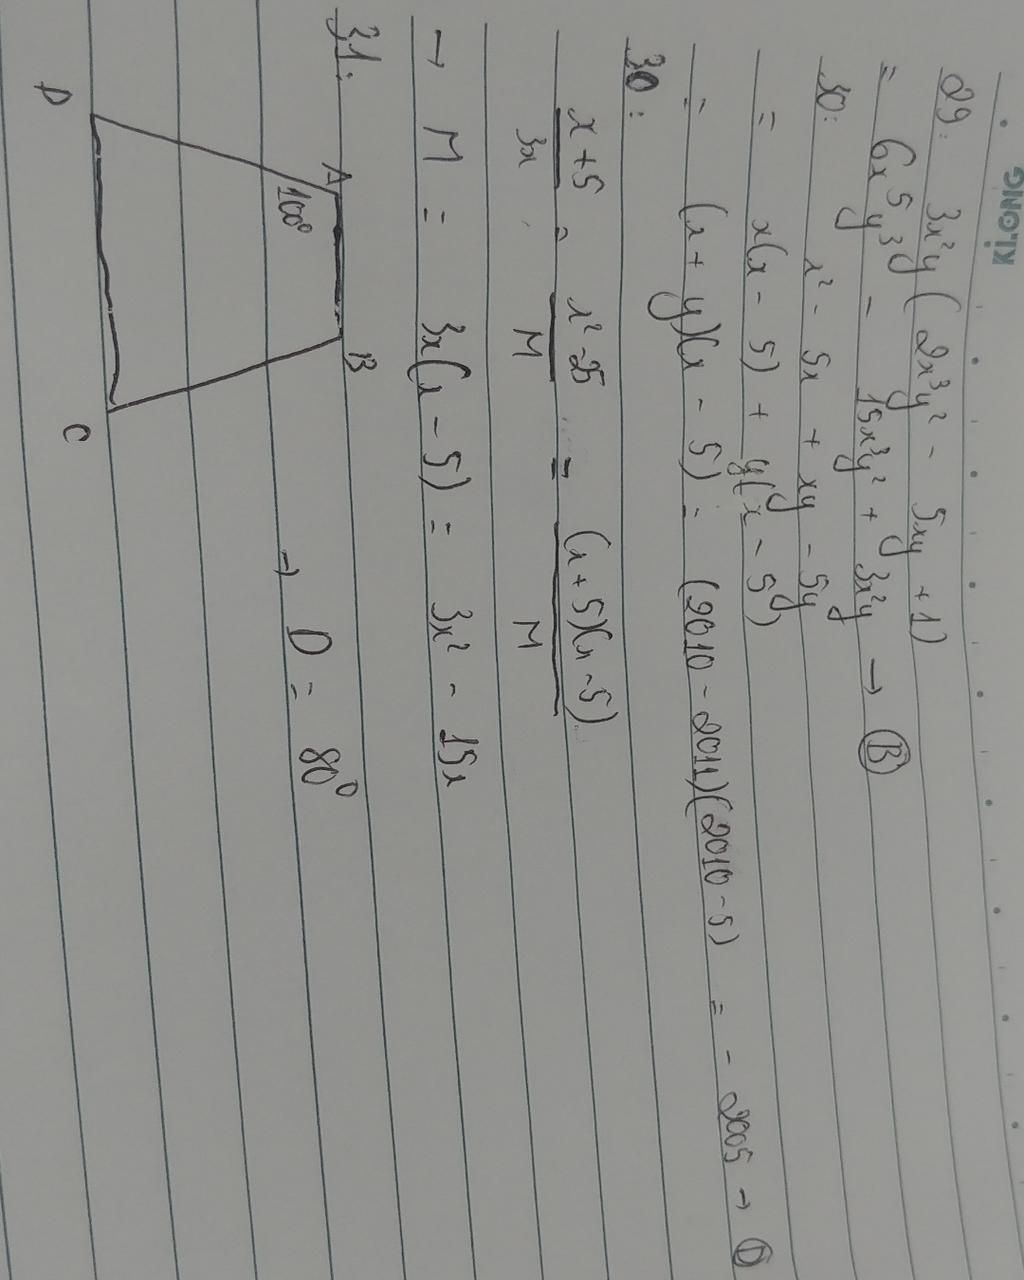 KiLONG
29: 3x²y ( 2x³y² - 5xy + 1)
= 6x⁵y³ - 15x³y² + 3x²y → B
30: x² - 5x + xy - 5y
= x(x - 5) + y(x - 5)
= (x + y)(x - 5) = (2010 - 2011)(2010 - 5) = - 2005 → D
30: x + 5 / 3x = x² - 25 / M = (x + 5)(x - 5) / M
→ M = 3x(x - 5) = 3x² - 15x
31.
A B
100°
→ D = 80°
D C